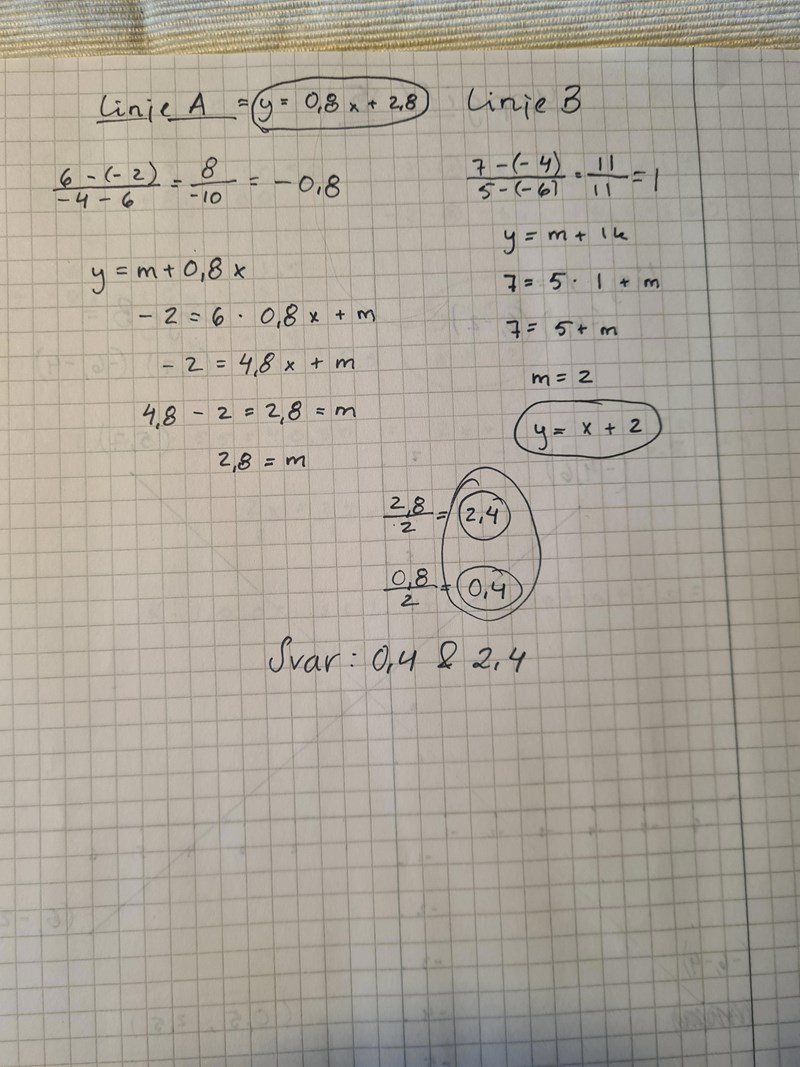 Linje A = y = 0,8 x + 2,8
6 - (-2) / -4 - 6 = 8 / -10 = -0,8
y = m + 0,8 x
- 2 = 6 · 0,8 x + m
- 2 = 4,8 x + m
4,8 - 2 = 2,8 = m
2,8 = m
Linje B
7 - (-4) / 5 - (-6) = 11 / 11 = 1
y = m + 1k
7 = 5 · 1 + m
7 = 5 + m
m = 2
y = x + 2
2,8 / 2 = 2,4
0,8 / 2 = 0,4
Svar: 0,4 & 2,4